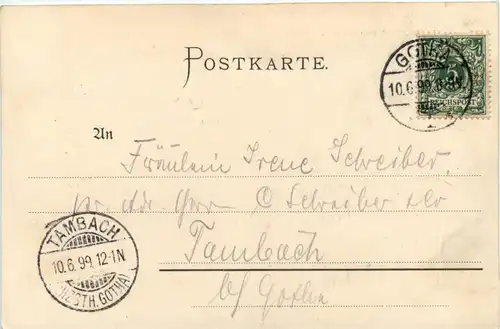 POSTKARTE.
GOTHA
10.6.99. 8-9N.
1.
REICHSPOST
An
Fräulein Irene Schreiber,
pr. Adr. Herr C Schreiber
Tambach
b/ Gotha
TAMBACH
10.6.99. 12-1N
(HZGTH. GOTHA)